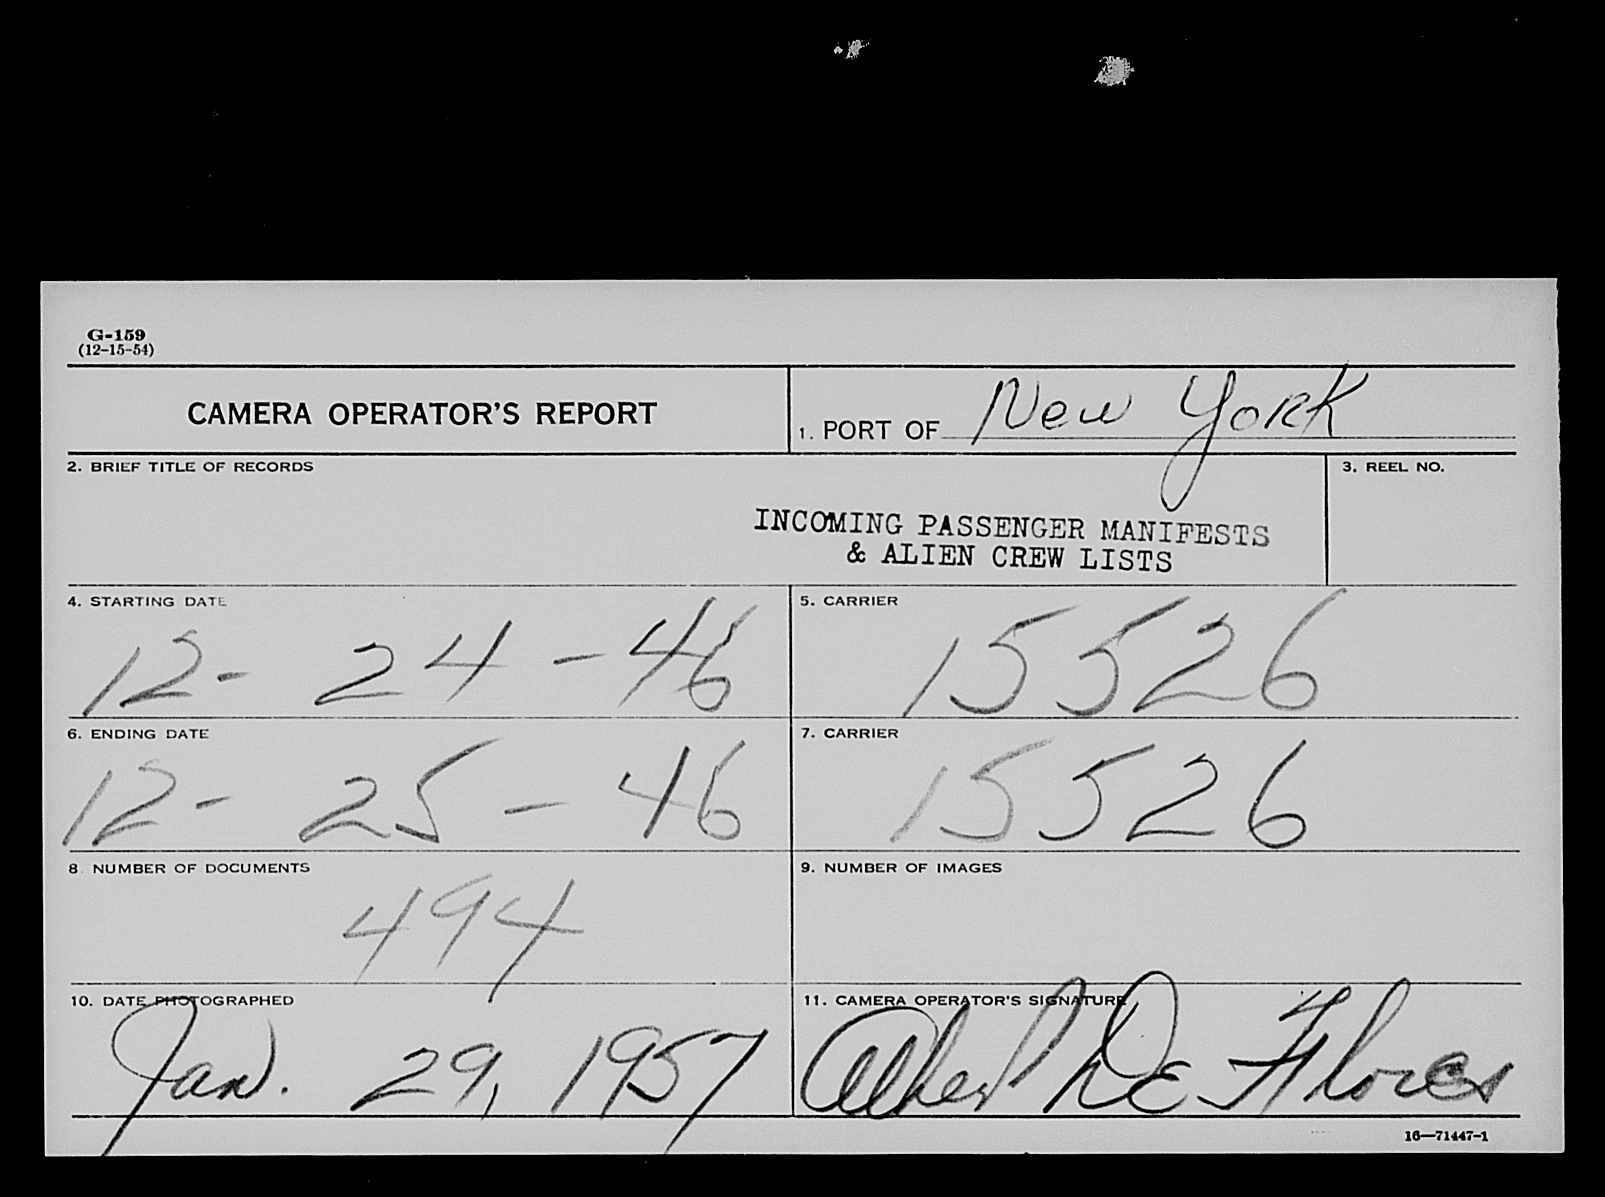 G-159
(12-15-54)
CAMERA OPERATOR'S REPORT
1. PORT OF New York
2. BRIEF TITLE OF RECORDS
3. REEL NO.
INCOMING PASSENGER MANIFESTS
& ALIEN CREW LISTS
4. STARTING DATE
12- 24-46
5. CARRIER
15526
6. ENDING DATE
12- 25-46
7. CARRIER
15526
8 NUMBER OF DOCUMENTS
494
9. NUMBER OF IMAGES
10. DATE PHOTOGRAPHED
Jan. 29, 1957
11. CAMERA OPERATOR'S SIGNATURE
Albert De Flores
16—71447-1